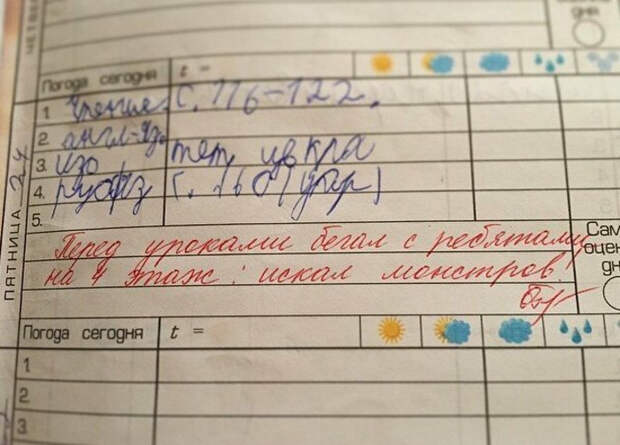 ЧЕТВЕ
дня
Погода сегодня t =
ПЯТНИЦА 24
1 Чтение с. 116-122.
2. англ-яз.
3. изо тет, цв кра
4. с. 160 (упр)
5.
Перед уроками бегал с ребятами
на 4 этаж: искал монстров!
Сам
оцен
дн
Погода сегодня t =
1
2
3.